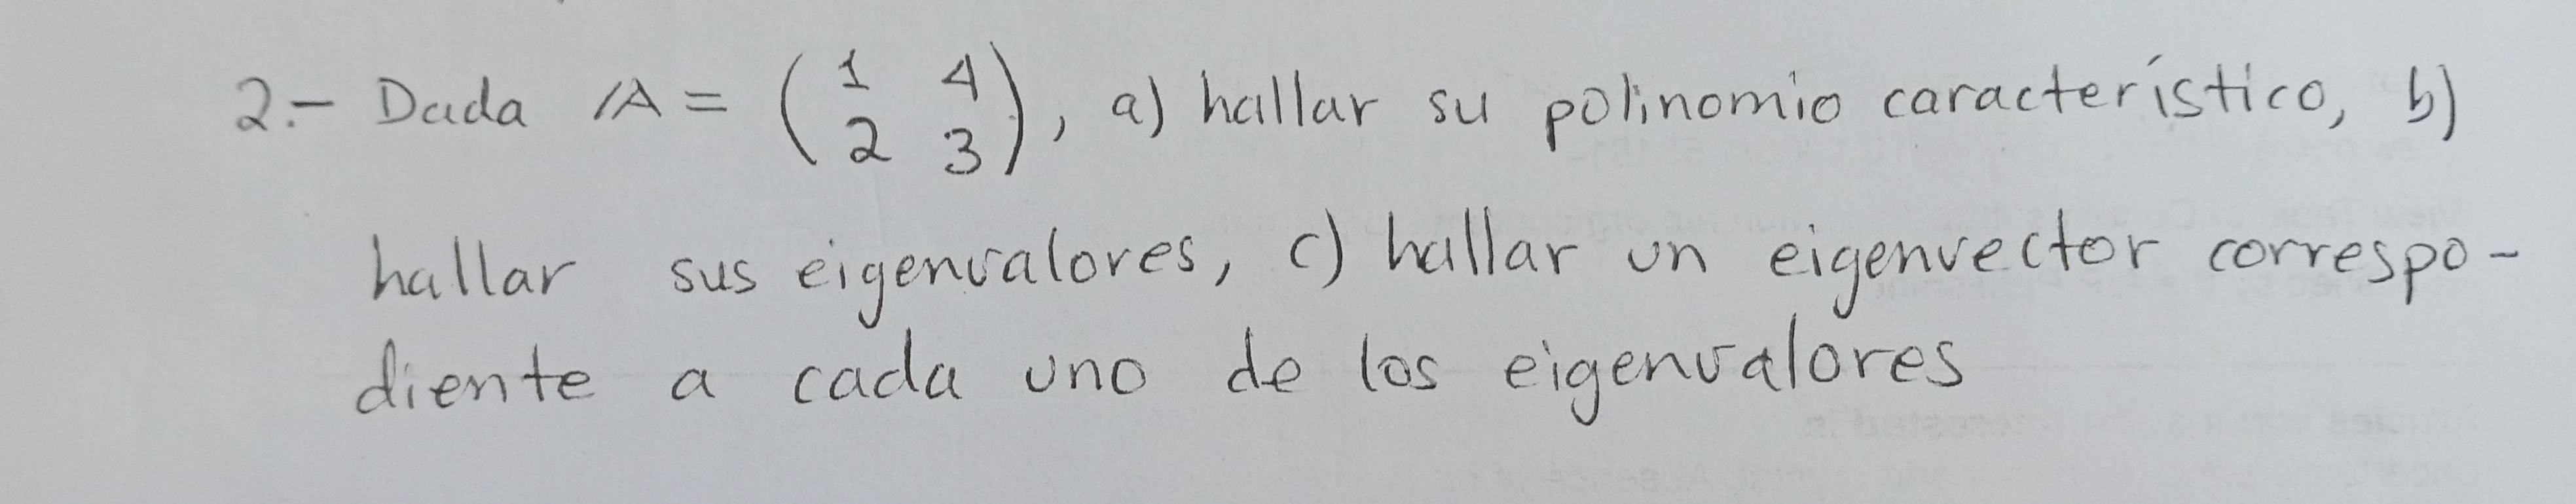 2.- Dada A = (1 4
2 3), a) hallar su polinomio característico, b)
hallar sus eigenvalores, c) hallar un eigenvector correspo-
diente a cada uno de los eigenvalores